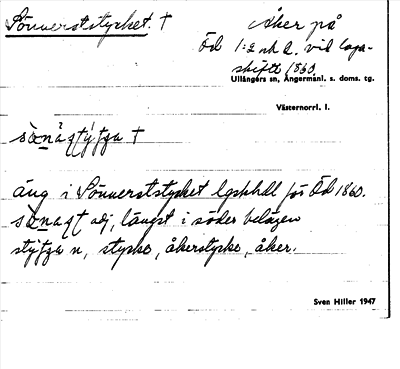 Sönnerststycket. †
Åker på
Öd 1:2 nk A. vid laga-
skifte 1860
Ullångers sn, Ångermanl. s. doms. tg.
Västernorrl. l.
äng i Sönnerststycket lgskhdl för Öd 1860.
adj, längst i söder belägen
n, stycke, åkerstycke, åker.
Sven Hiller 1947